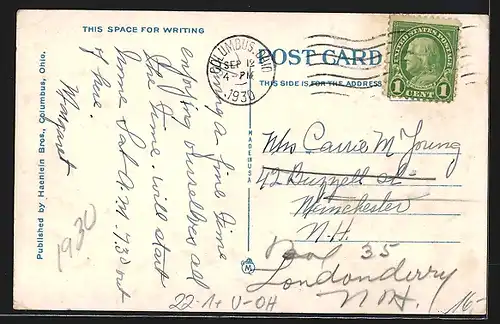 THIS SPACE FOR WRITING
POST CARD
THIS SIDE IS FOR THE ADDRESS
COLUMBUS, OHIO
SEP 12
4-PM
1930
UNITED STATES POSTAGE
1 CENT 1
Having a fine time
enjoying ourselves all
of the time. will start
home Sat A.M 7.30 out
of here.
Margaret
1930
Mrs Carrie M Young
42 Buzzell st
Winchester
N.H.
Box 35
Londonderry
N.H.
MADE IN USA
Published by Haenlein Bros., Columbus, Ohio.
22-1+ U-OH
16-